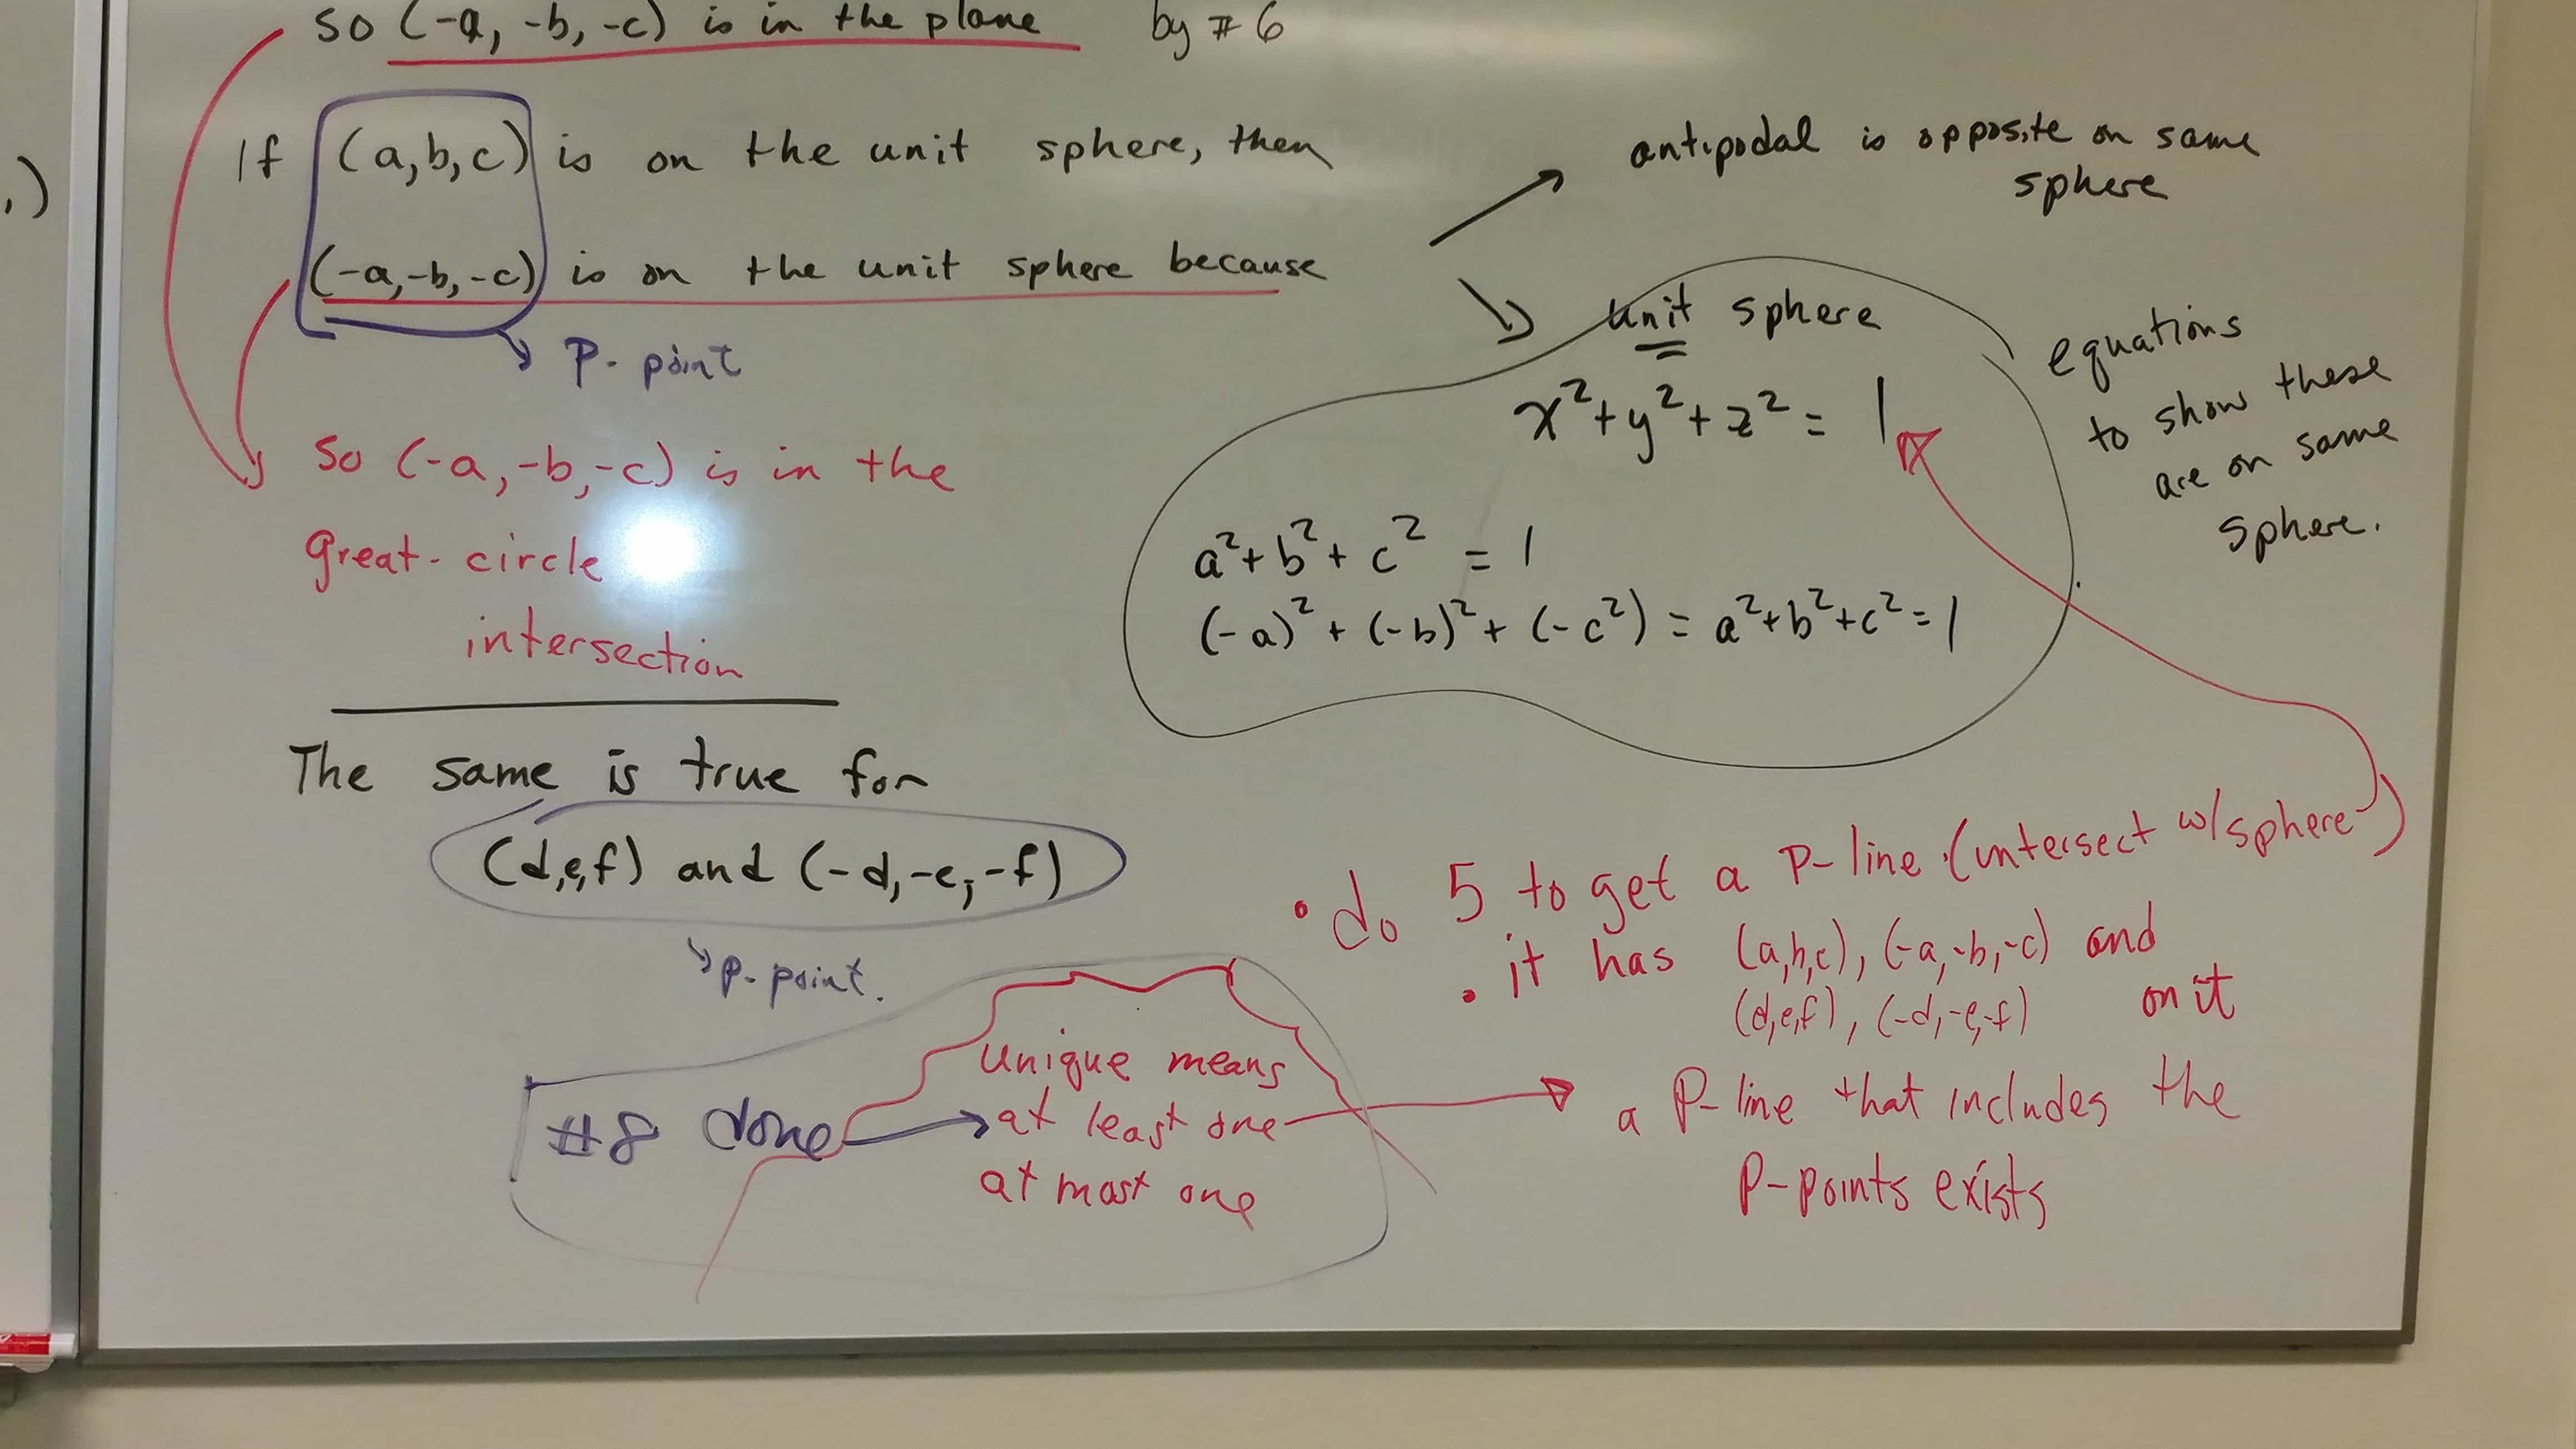 so (-a, -b, -c) is in the plane by # 6
.)
If (a,b,c) is on the unit sphere, then
(-a,-b,-c) is on the unit sphere because
P-point
antipodal is opposite on same
sphere
unit sphere
x²+y²+z² = 1
a²+b²+c² = 1
(-a)²+(-b)²+(-c²) = a²+b²+c²=1
equations
to show these
are on same
sphere.
So (-a,-b,-c) is in the
great-circle
intersection
The same is true for
(d,e,f) and (-d,-e,-f)
p-point.
#8 done
unique means
at least one
at most one
• do 5 to get a P-line (intersect w/sphere)
• it has (a,b,c), (-a,-b,-c) and
(d,e,f), (-d,-e,-f) on it
a P-line that includes the
P-points exists